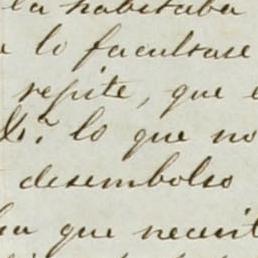 la habitaba
lo facultase
repite, que
Sr. lo que no
desembolso
que necesit